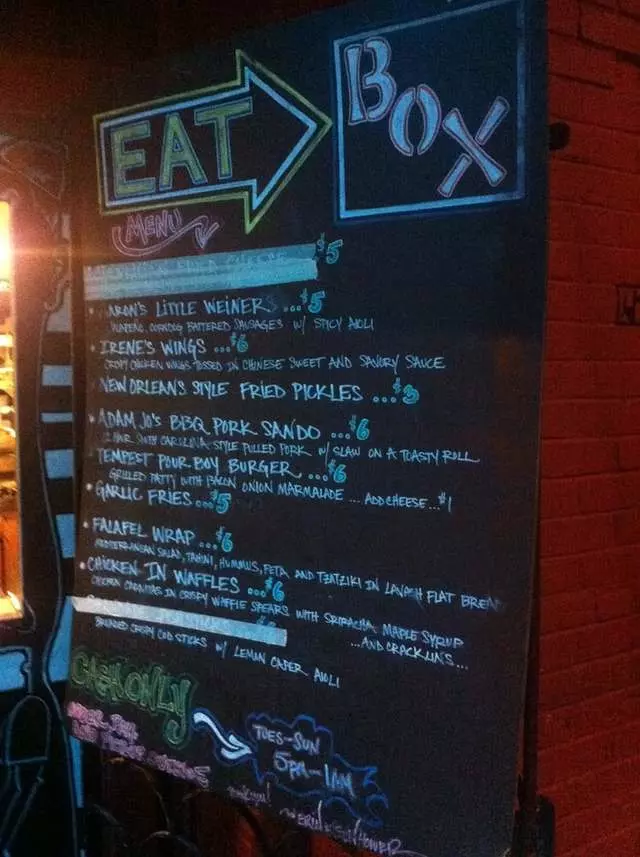 EAT
BOX
MENU
$5
LITTLE WEINERS ...$5
CORNDOG BATTERED SAUSAGES W/ SPICY AIOLI
• IRENE'S WINGS ...$6
CRISPY CHICKEN WINGS TOSSED IN CHINESE SWEET AND SAVORY SAUCE
NEW ORLEAN'S STYLE FRIED PICKLES ...$5
• ADAM JO'S BBQ PORK SANDO ...$6
SOUTH CAROLINA STYLE PULLED PORK W/ SLAW ON A TOASTY ROLL
TEMPEST POUR BOY BURGER ...$6
GRILLED PATTY WITH BACON ONION MARMALADE ... ADD CHEESE ...$1
• GARLIC FRIES ...$5
• FALAFEL WRAP ...$6
MEDITERRANEAN SALAD, TAHINI, HUMMUS, FETA AND TZATZIKI IN LAVASH FLAT BREAD
• CHICKEN IN WAFFLES ...$6
CHICKEN CARNITAS IN CRISPY WAFFLE SPEARS WITH SRIRACHA MAPLE SYRUP
...AND CRACKLINS...
CRISPY COD STICKS W/ LEMON CAPER AIOLI
CASH ONLY
TUES-SUN
5PM-1AM
THANK YOU!